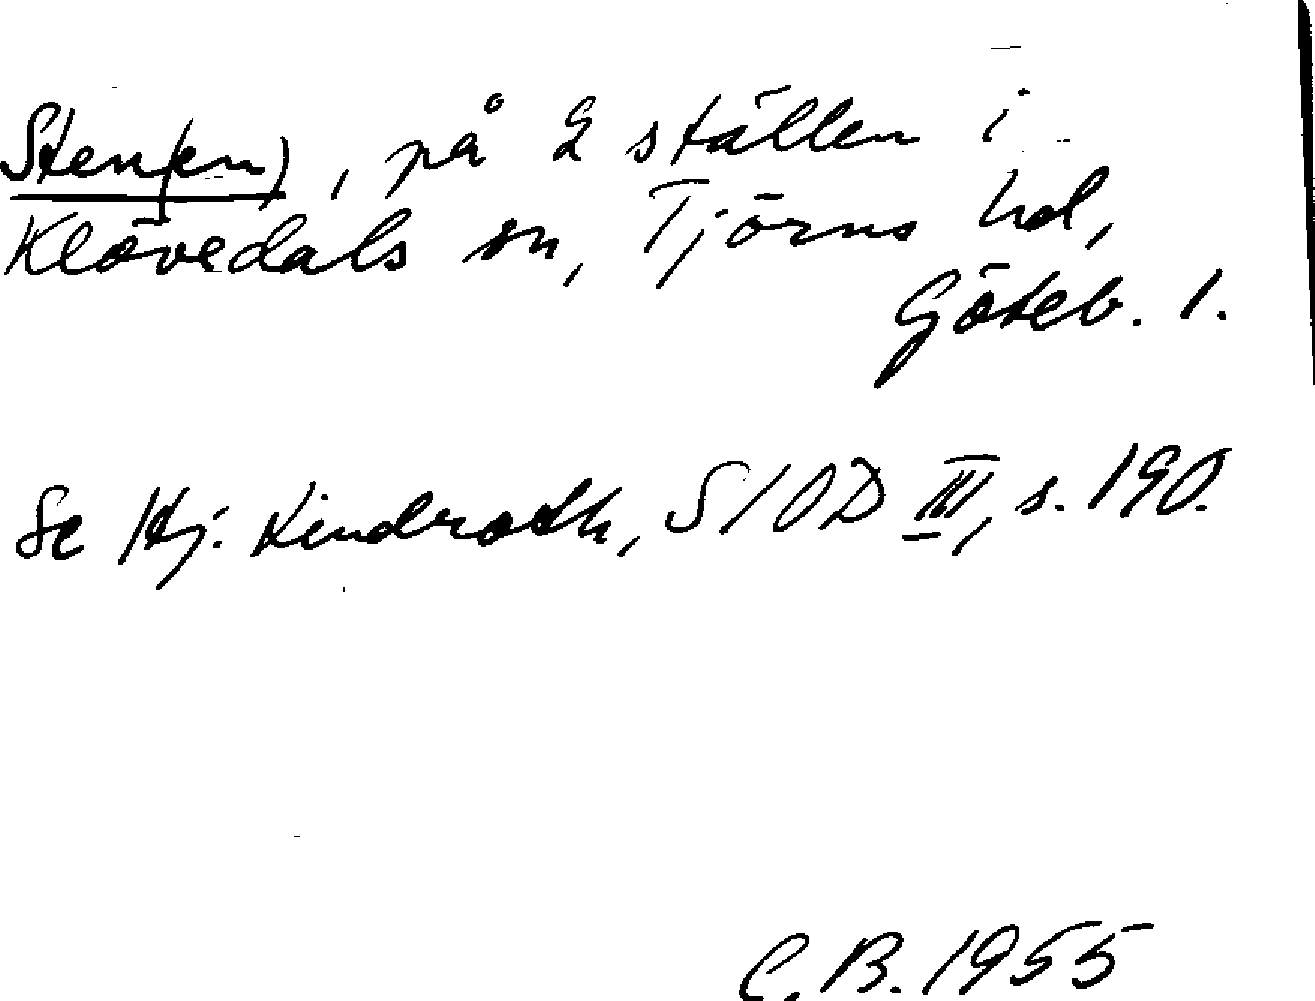 Sten(en), på 2 ställen i
Klövedals sn, Tjörns hd,
Göteb. l.
Se Hj. Lindroth, SIOD III, s. 190.
C. B. 1955